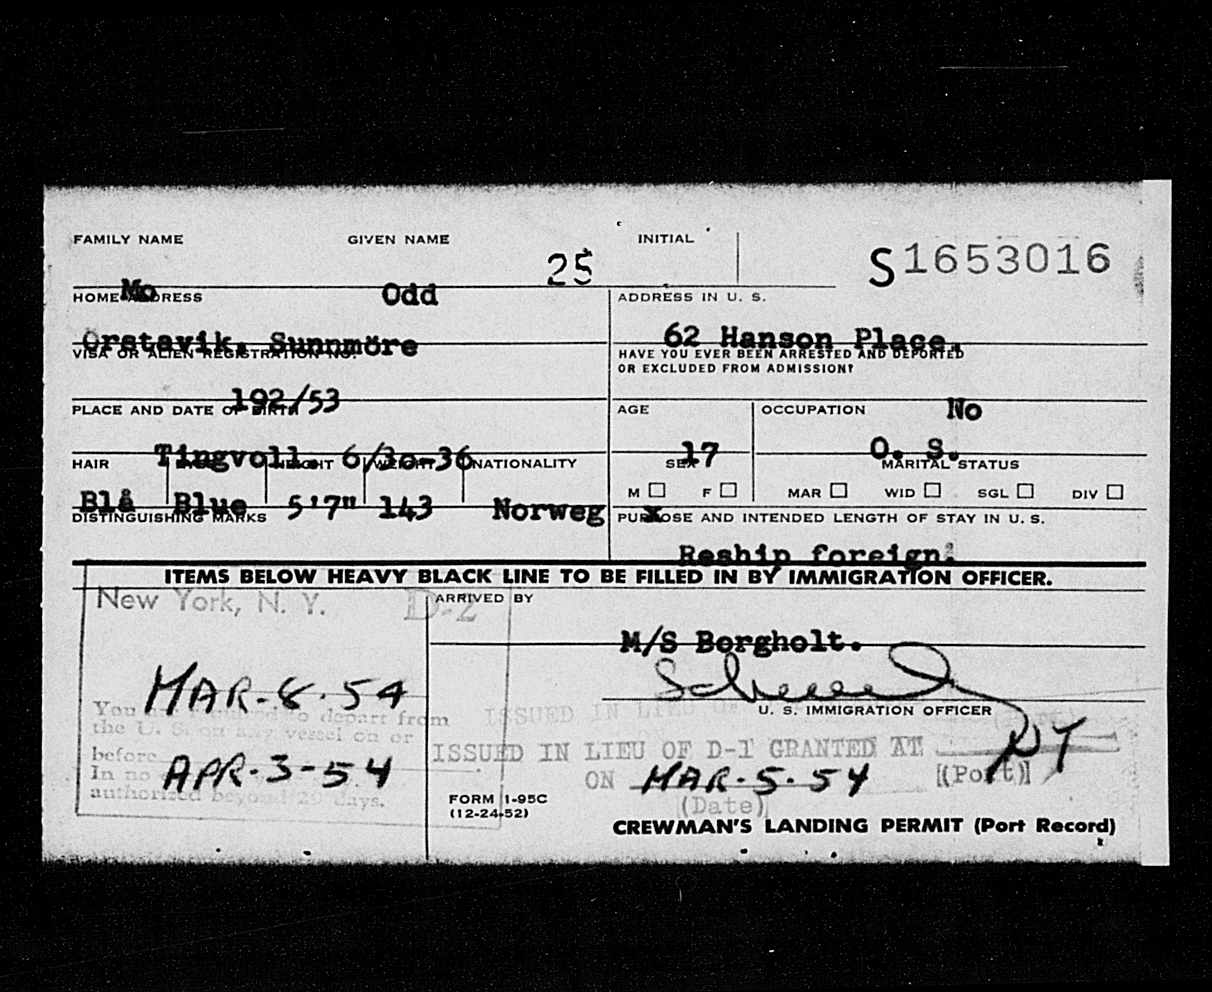 FAMILY NAME GIVEN NAME INITIAL
25 S1653016
Mo Odd
HOME ADDRESS ADDRESS IN U. S.
Orstavik, Sunnmöre 62 Hanson Place.
VISA OR ALIEN REGISTRATION NO. HAVE YOU EVER BEEN ARRESTED AND DEPORTED
OR EXCLUDED FROM ADMISSION?
192/53 No
PLACE AND DATE OF BIRTH AGE OCCUPATION
Tingvoll. 6/30-36 17 O. S.
HAIR EYES HEIGHT WEIGHT NATIONALITY SEX MARITAL STATUS
M F MAR WID SGL DIV
Blå Blue 5'7" 143 Norweg x
DISTINGUISHING MARKS PURPOSE AND INTENDED LENGTH OF STAY IN U. S.
Reship foreign.
ITEMS BELOW HEAVY BLACK LINE TO BE FILLED IN BY IMMIGRATION OFFICER.
New York, N. Y. D-2 ARRIVED BY
M/S Borgholt.
MAR-8-54
U. S. IMMIGRATION OFFICER
You are required to depart from
the U. S. on any vessel on or
before APR-3-54
In no
authorized beyond 29 days.
ISSUED IN LIEU OF D-1 GRANTED AT NY
ON MAR-5-54 (Port)
(Date)
FORM I-95C
(12-24-52)
CREWMAN'S LANDING PERMIT (Port Record)